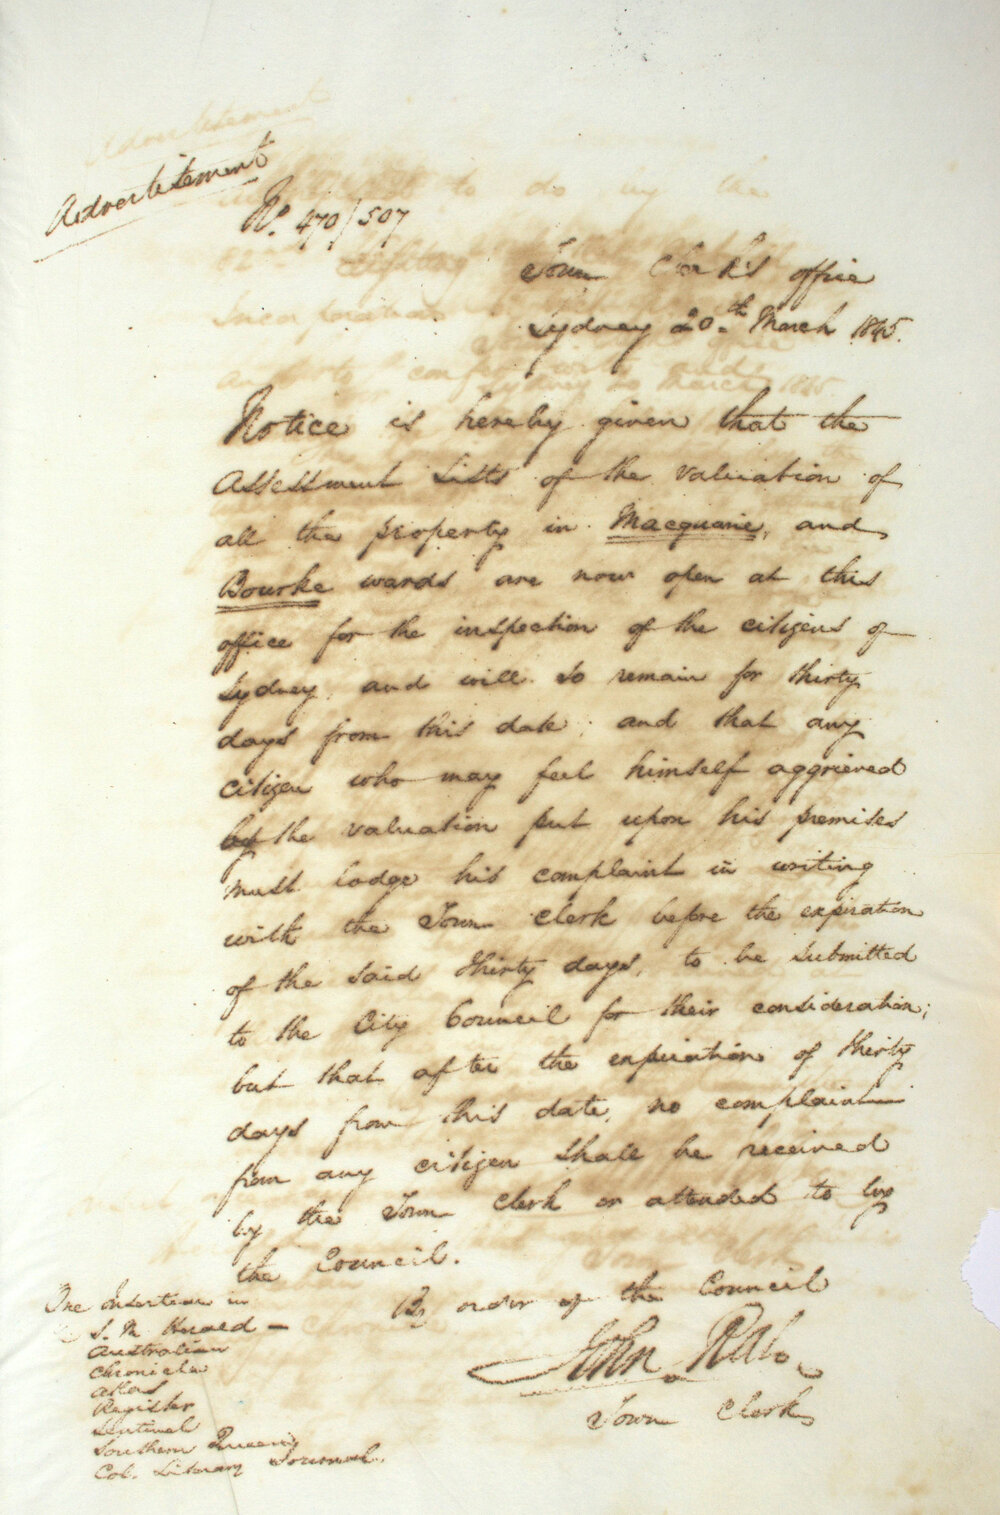 Advertisement
No. 470/507
Town Clerk's office
Sydney 20th March 1845.
Notice is hereby given that the
Assessment Lists of the valuation of
all the property in Macquarie, and
Bourke wards are now open at this
office for the inspection of the citizens of
Sydney, and will so remain for thirty
days from this date; and that any
citizen who may feel himself aggrieved
by the valuation put upon his premises
must lodge his complaint in writing
with the Town Clerk before the expiration
of the said thirty days, to be submitted
to the City Council for their consideration;
but that after the expiration of thirty
days from this date, no complaint
from any citizen shall be received
by the Town Clerk or attended to by
the Council.
By order of the Council
John Rae
Town Clerk
One Insertion in
S. M Herald
Australian
Chronicle
Atlas
Register
Sentinel
Southern Queen
Col. Literary Journal.